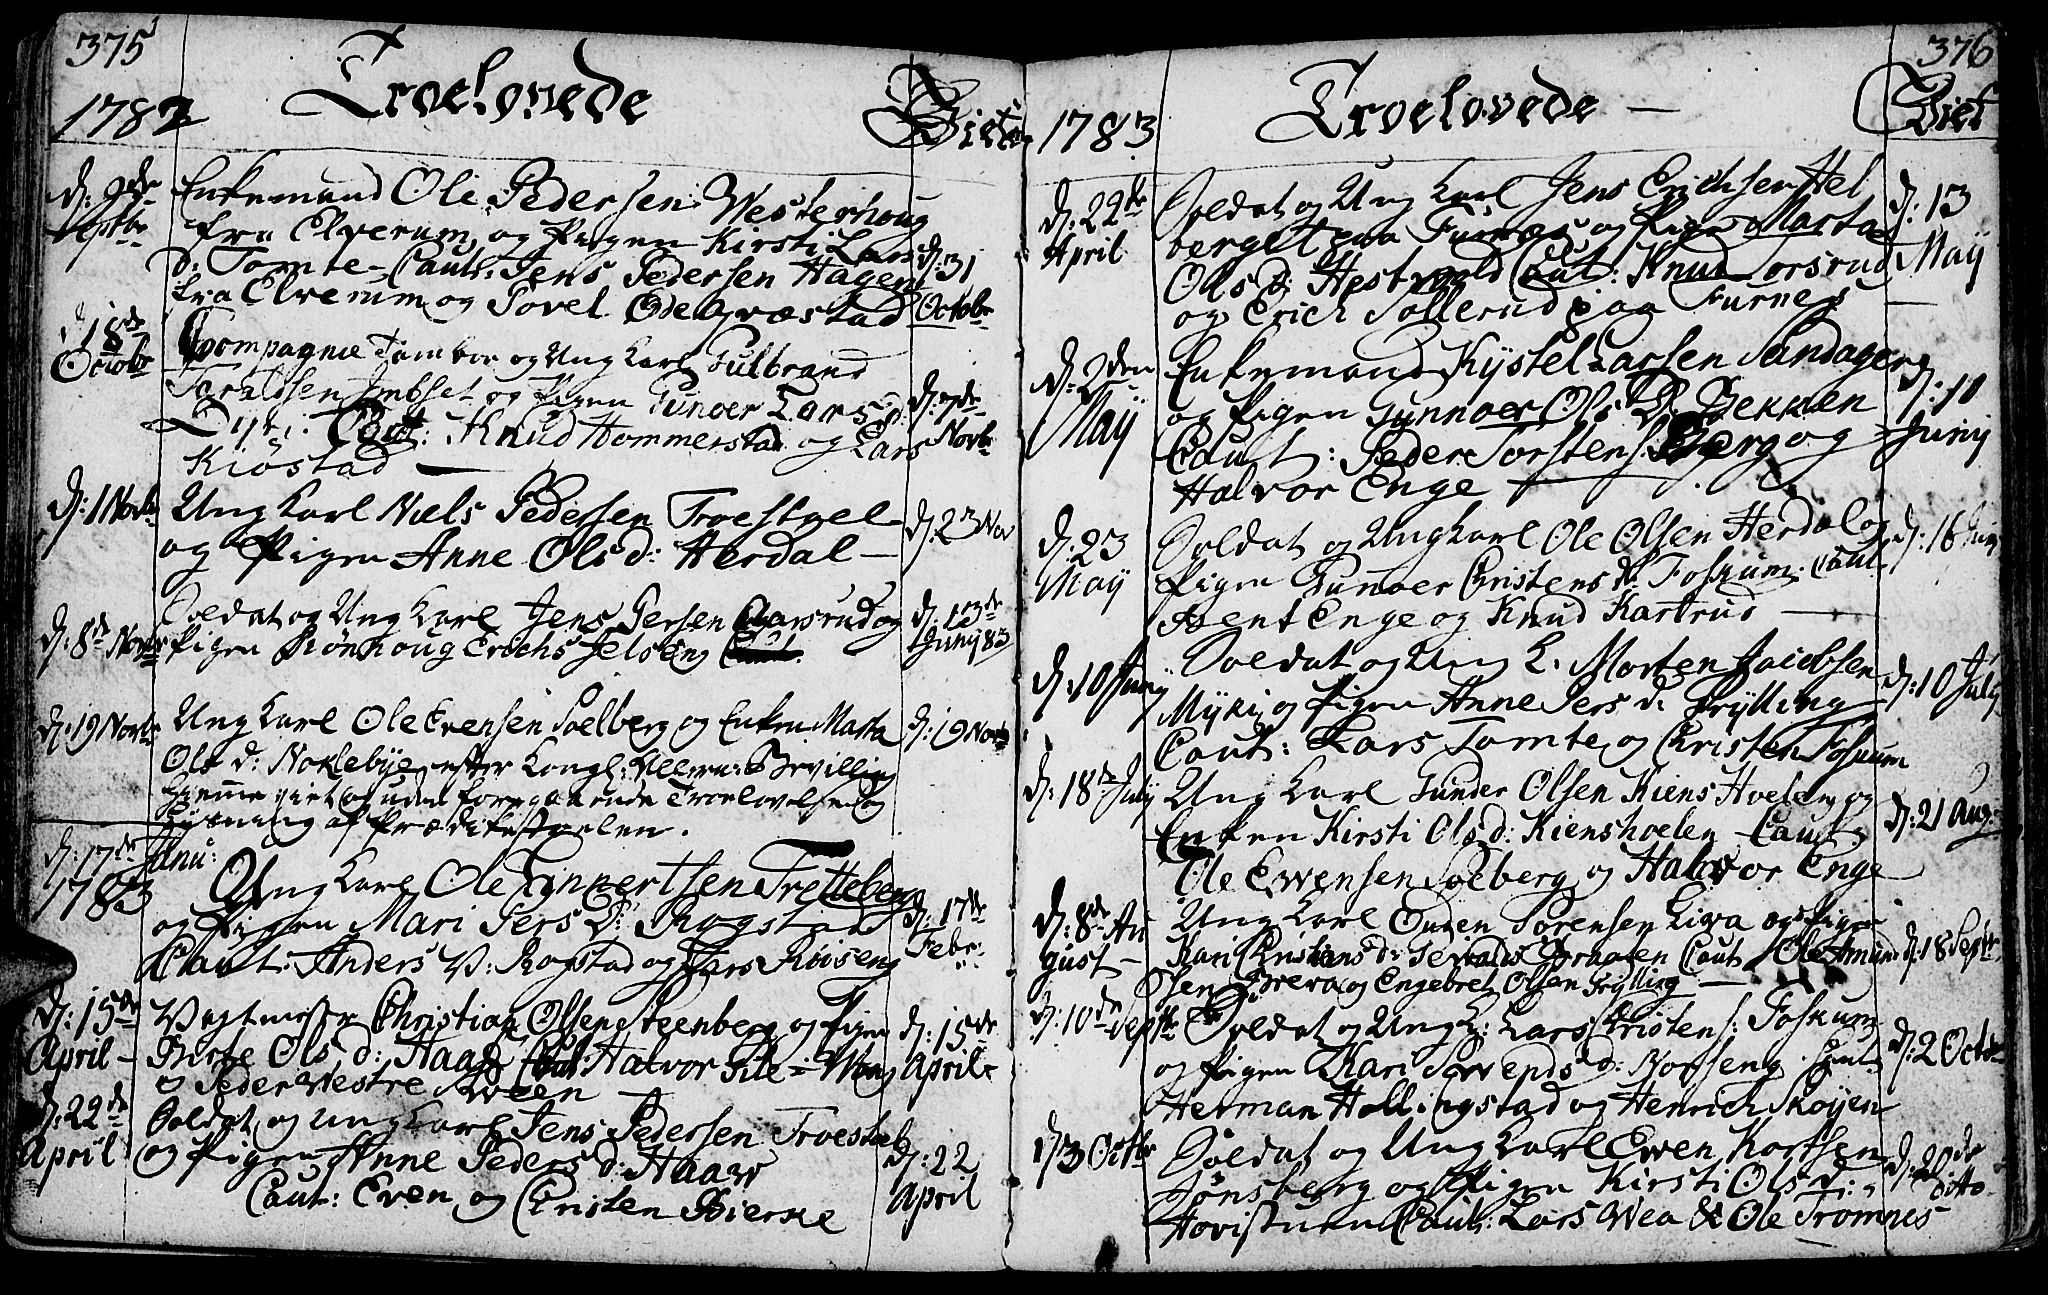 375
1782
Troelovede
Viet
d: 9de Septbr
Enkemand Ole Pedersen Westerhoug
fra Elverum og Pigen Kirsti Lars
d: Tomte – Caut: Jens Pedersen Hagen
fra Elverum og Povel Ødegvæstad
d: 31 Octobr
d: 18de Octobr
Compagnie Tambor og Ung Karl Gulbrand
Imbset og Pigen Gunoer Lars d:
Caut: Knud Hommerstad og Lars
Kiøstad
d: 7de Novbr
d: 1 Novbr
Ung Karl Niels Pedersen Troestvel
og Pigen Anne Ols d: Herdal –
d: 23 Nov
d: 8de Novbr
Soldat og Ung Karl Jens Persen Clarsrud og
Pigen Rønnoug Erichs Jelseng Caut.
d: 13de Juny 83
d: 19 Novbr
Ung Karl Ole Evensen Soelberg og Enken Marta
Ols d: Noklebye efter Kongl: Allern: Bevilling
Hjemme viet og uden foregaaende Troelovelse og
Lysning af Prædikestoelen.
d: 19 Novbr
d: 17de Janu: 1783
Ung Karl Ole Engebertsen Tretteberg
og Pigen Mari Pers D: Rogstad
Caut: Anders V: Rogstad og Lars Røiseng
d: 17de Febr:
d: 15de April –
Vagtmester Christian Olsen Steenberg og Pigen
Birte Ols d: Haag Caut: Halvor Sile-Moen
& Peder Westre Kween
d: 15de April
d: 22de April
Soldat og Ung Karl Jens Pedersen Troestvel
og Pigen Anne Peders d: Haaw
Caut: Even og Christen Bierke
d: 22 April
376
1783
Troelovede –
Viet
d: 22de April
Soldat og Ung Karl Jens Erichsen Hel
berget paa Furnæs og Pige Marta
Ols d: Hestvold Caut: Knud Torsrud
og Erich Sollerud paa Furnes
d: 13 May
d: 2den May
Enkemand Kystel Larsen Sandager
og Pigen Gunnoer Ols D: Bekken
Caut: Peder Torstens: Berg og
Halvor Enge
d: 10 Juny
d: 23 May
Soldat og Ung Karl Ole Olsen Herdal og
Pigen Gunoer Christens d: Fossum. Caut:
Bent Enge og Knud Kartrud –
d: 16 Juny
d: 10 Juny
Soldat og Ung K. Morten Jacobsen
Myki og Pigen Anne Pers d: Prylling
Caut: Lars Tomte og Christen Fossum
d: 10 July
d: 18de July
Ung Karl Gunder Olsen Kiens Hoelen og
Enken Kirsti Ols d: Kienshoelen Caut:
Ole Ewensen Soeberg og Halvor Enge
d: 21 Aug:
d: 8de Au
gust –
Ung Karl Ouden Sørensen Liwa og Pige
Kari Christens d: Caut: Ole Amund
sen Greva og Engebret Olsen Frylling –
d: 18 Septbr
d: 10de Septbr
Soldat og Ung K: Lars Christens: Foskum
og Pigen Kari Svends d: Borseng. Caut:
Herman Hollingstad og Henrich Skøyen
d: 2 Octbr
d: 3 Octbr
Soldat og Ung Karl Ewen Kortsen
Jønsberg og Pigen Kirsti Ols d:
Hovistuen Caut: Lars Wea & Ole Tromnes
d: 20de ditto